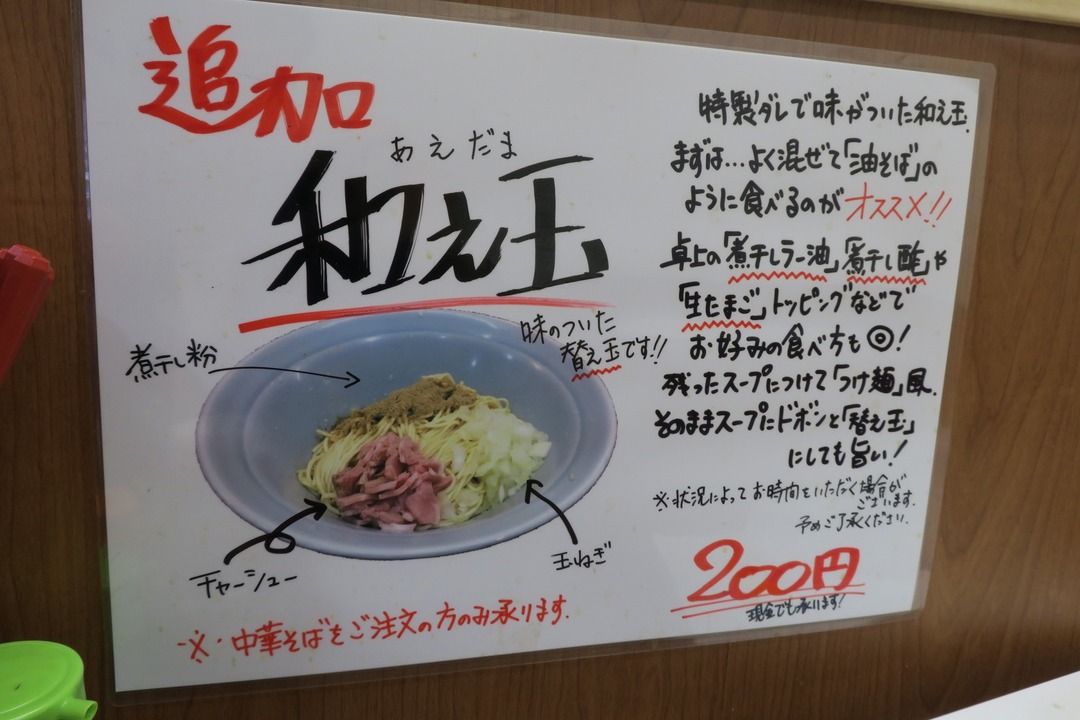 追加
あえだま
和え玉
味のついた
替え玉です!!
煮干し粉
チャーシュー
玉ねぎ
※中華そばをご注文の方のみ承ります.
特製ダレで味がついた和え玉.
まずは…よく混ぜて「油そば」の
ように食べるのがオススメ!!
卓上の「煮干しラー油」「煮干し酢」や
「生たまご」トッピングなどで
お好みの食べ方も◎!
残ったスープにつけて「つけ麺」風.
そのままスープにドボンと「替え玉」
にしても旨い!
※状況によってお時間をいただく場合が
ございます.
予めご了承ください.
200円
現金でも承ります!